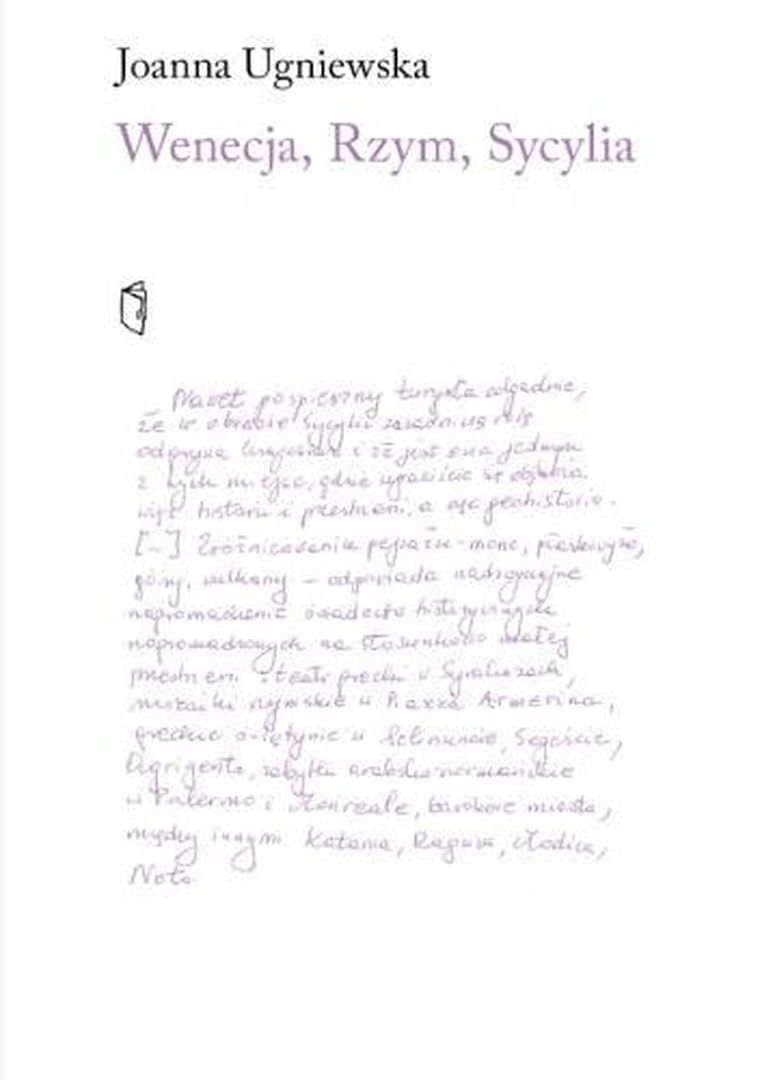 Joanna Ugniewska
Wenecja, Rzym, Sycylia
Nawet pospieszny turysta odgadnie,
że w obrębie Sycylii
i że jest ona jednym
z tych miejsc, gdzie
więc historia i przestrzeń, a
[–] Zróżnicowanie pejzażu – morze, płaskowyże,
góry, wulkany – odpowiada
nagromadzenie świadectw historycznych
nagromadzonych na stosunkowo małej
przestrzeni: teatr grecki w Syrakuzach,
mozaiki rzymskie w Piazza Armerina,
greckie świątynie w Selinuncie, Segeście,
Agrigento, zabytki arabsko-normandzkie
w Palermo i Monreale, barokowe miasta,
między innymi Katania, Ragusa, Modica,
Noto